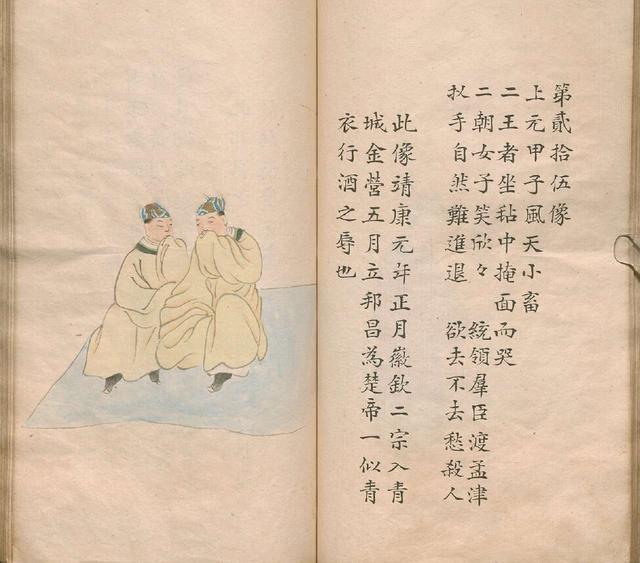 第貳拾伍像
上元甲子風天小畜
二王者坐毡中掩面而哭
二朝女子笑欣々 統領羣臣渡孟津
扠手自然難進退 欲去不去愁殺人
此像靖康元年正月徽欽二宗入青
城金營五月立邦昌為楚帝一似青
衣行酒之辱也